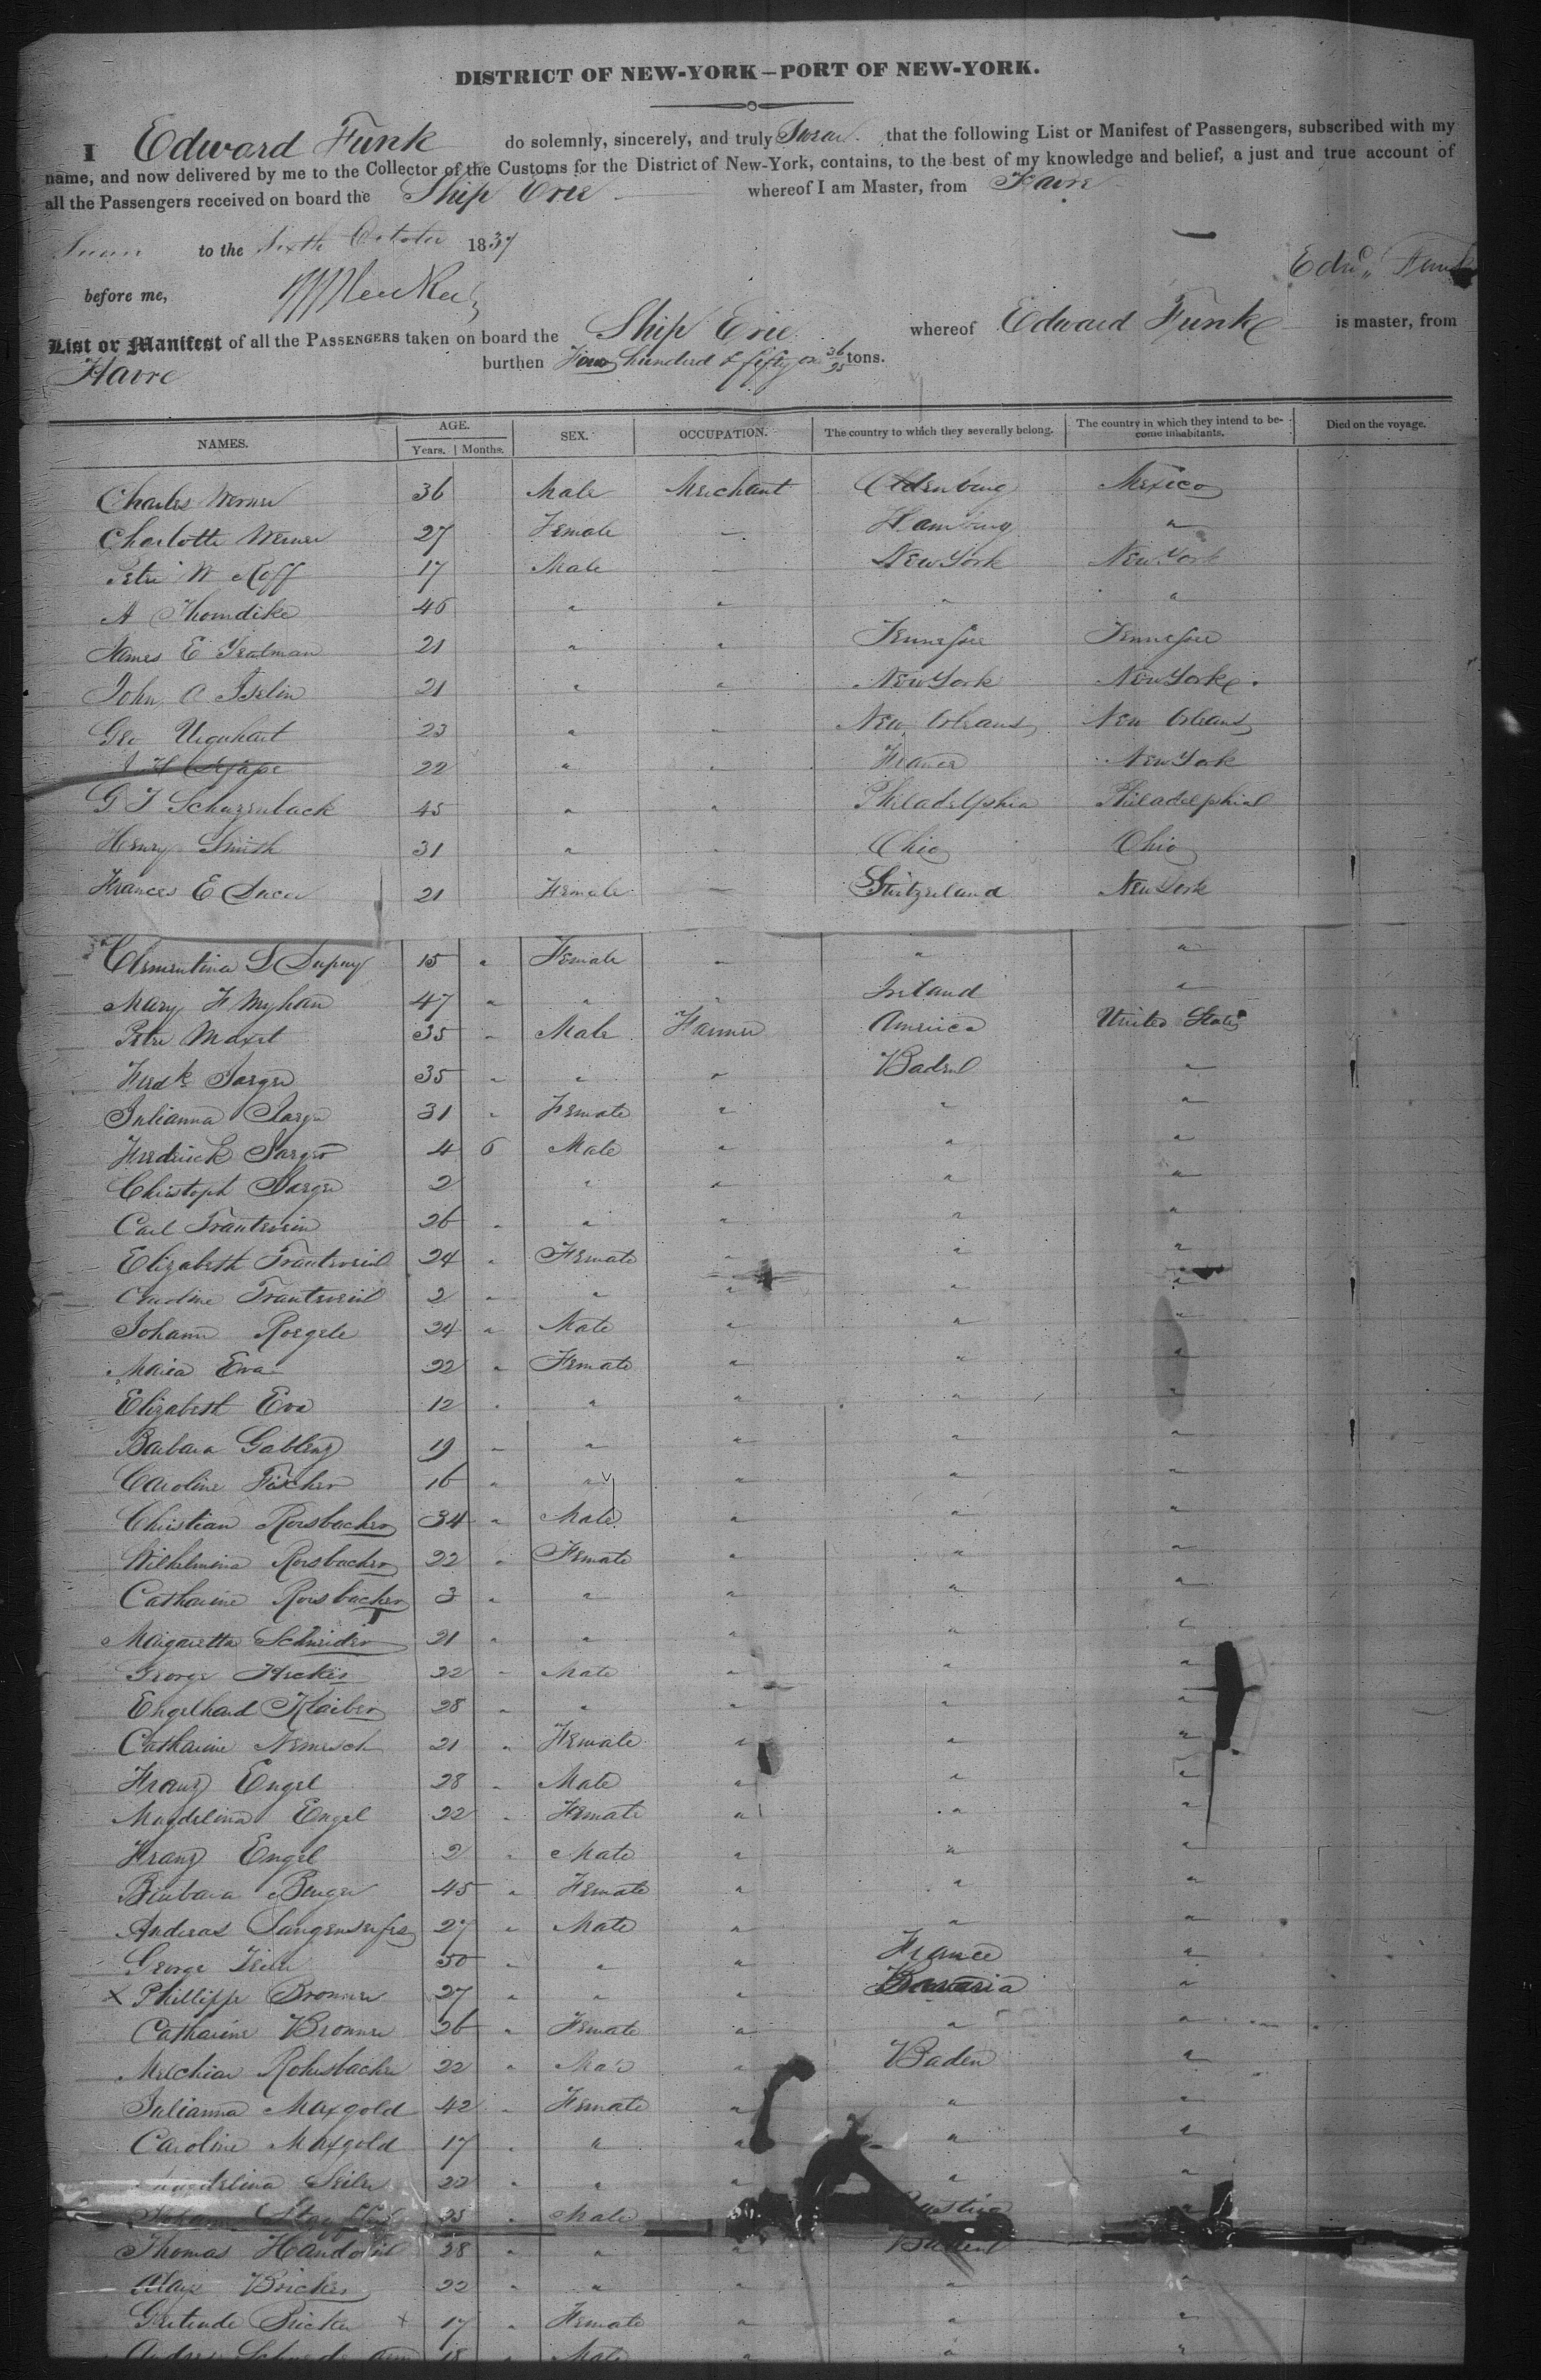 DISTRICT OF NEW-YORK—PORT OF NEW-YORK.
I Edward Funk do solemnly, sincerely, and truly Swear that the following List or Manifest of Passengers, subscribed with my
name, and now delivered by me to the Collector of the Customs for the District of New-York, contains, to the best of my knowledge and belief, a just and true account of
all the Passengers received on board the Ship Erie whereof I am Master, from Havre
to the Sixth October 1837
Edwd Funk
before me,
List or Manifest of all the PASSENGERS taken on board the Ship Erie whereof Edward Funk is master, from
Havre burthen Four hundred & fifty 36/95 tons.
NAMES. AGE. SEX. OCCUPATION. The country to which they severally belong. The country in which they intend to be- Died on the voyage.
Years. Months. come inhabitants.
Charles Werner 36 Male Merchant Oldenburg Mexico
Charlotte Werner 27 Female — Hamburg "
Peter W Roff 17 Male — New York New York
A Thorndike 46 " " " "
James E Yeatman 21 " " Tennessee Tennessee
John A Iselin 21 " " New York New York
Geo Urquhart 23 " " New Orleans New Orleans
22 " " France New York
G F 45 " " Philadelphia Philadelphia
Henry Smith 31 " " Ohio Ohio
Frances E 21 Female — Switzerland New York
Clementina 15 " Female " " "
Mary F Myhan 47 " " " Ireland "
Peter Maxet 35 " Male Farmer America United States
Fredk Sarger 35 " " " Baden "
Julianna Sarger 31 " Female " " "
Frederick Sarger 4 6 Male " " "
Christoph Sarger 2 " " " "
Carl Trautwein 26 " " " " "
Elizabeth Trautwein 24 " Female " " "
Trautwein 2 " " " " "
Johann Roegele 24 " Male " " "
Maria Eva 22 " Female " " "
Elizabeth Eva 12 " " " " "
Barbara Gablenz 19 " " " " "
Caroline Fischer 16 " " " " "
Christian Rorsbacher 34 " Male " " "
Wilhelmina Rorsbacher 22 " Female " " "
Catharine Rorsbacher 3 " " " " "
Margaretta Schneider 21 " " " " "
George 22 " Male " " "
Engelhard Klaiber 28 " " " " "
Catharine Nemesch 21 " Female " " "
Franz Engel 28 " Male " " "
Magdelina Engel 22 " Female " " "
Franz Engel 2 " Male " " "
Barbara 45 " Female " " "
Andreas 27 " Male " " "
George 50 " " " France "
x Phillipp Bronner 27 " " " Bavaria "
Catharine Bronner 26 " Female " " "
Melchior Rohrsbacher 22 " Male " Baden "
Julianna Maxgold 42 " Female " " "
Caroline Maxgold 17 " " " " "
Seiler 22 " " " " "
25 " Male
Thomas 28 " " " Baden
Bricker 22 " " " " "
Gertrude x 17 " Female " " "
18 " Male " " "